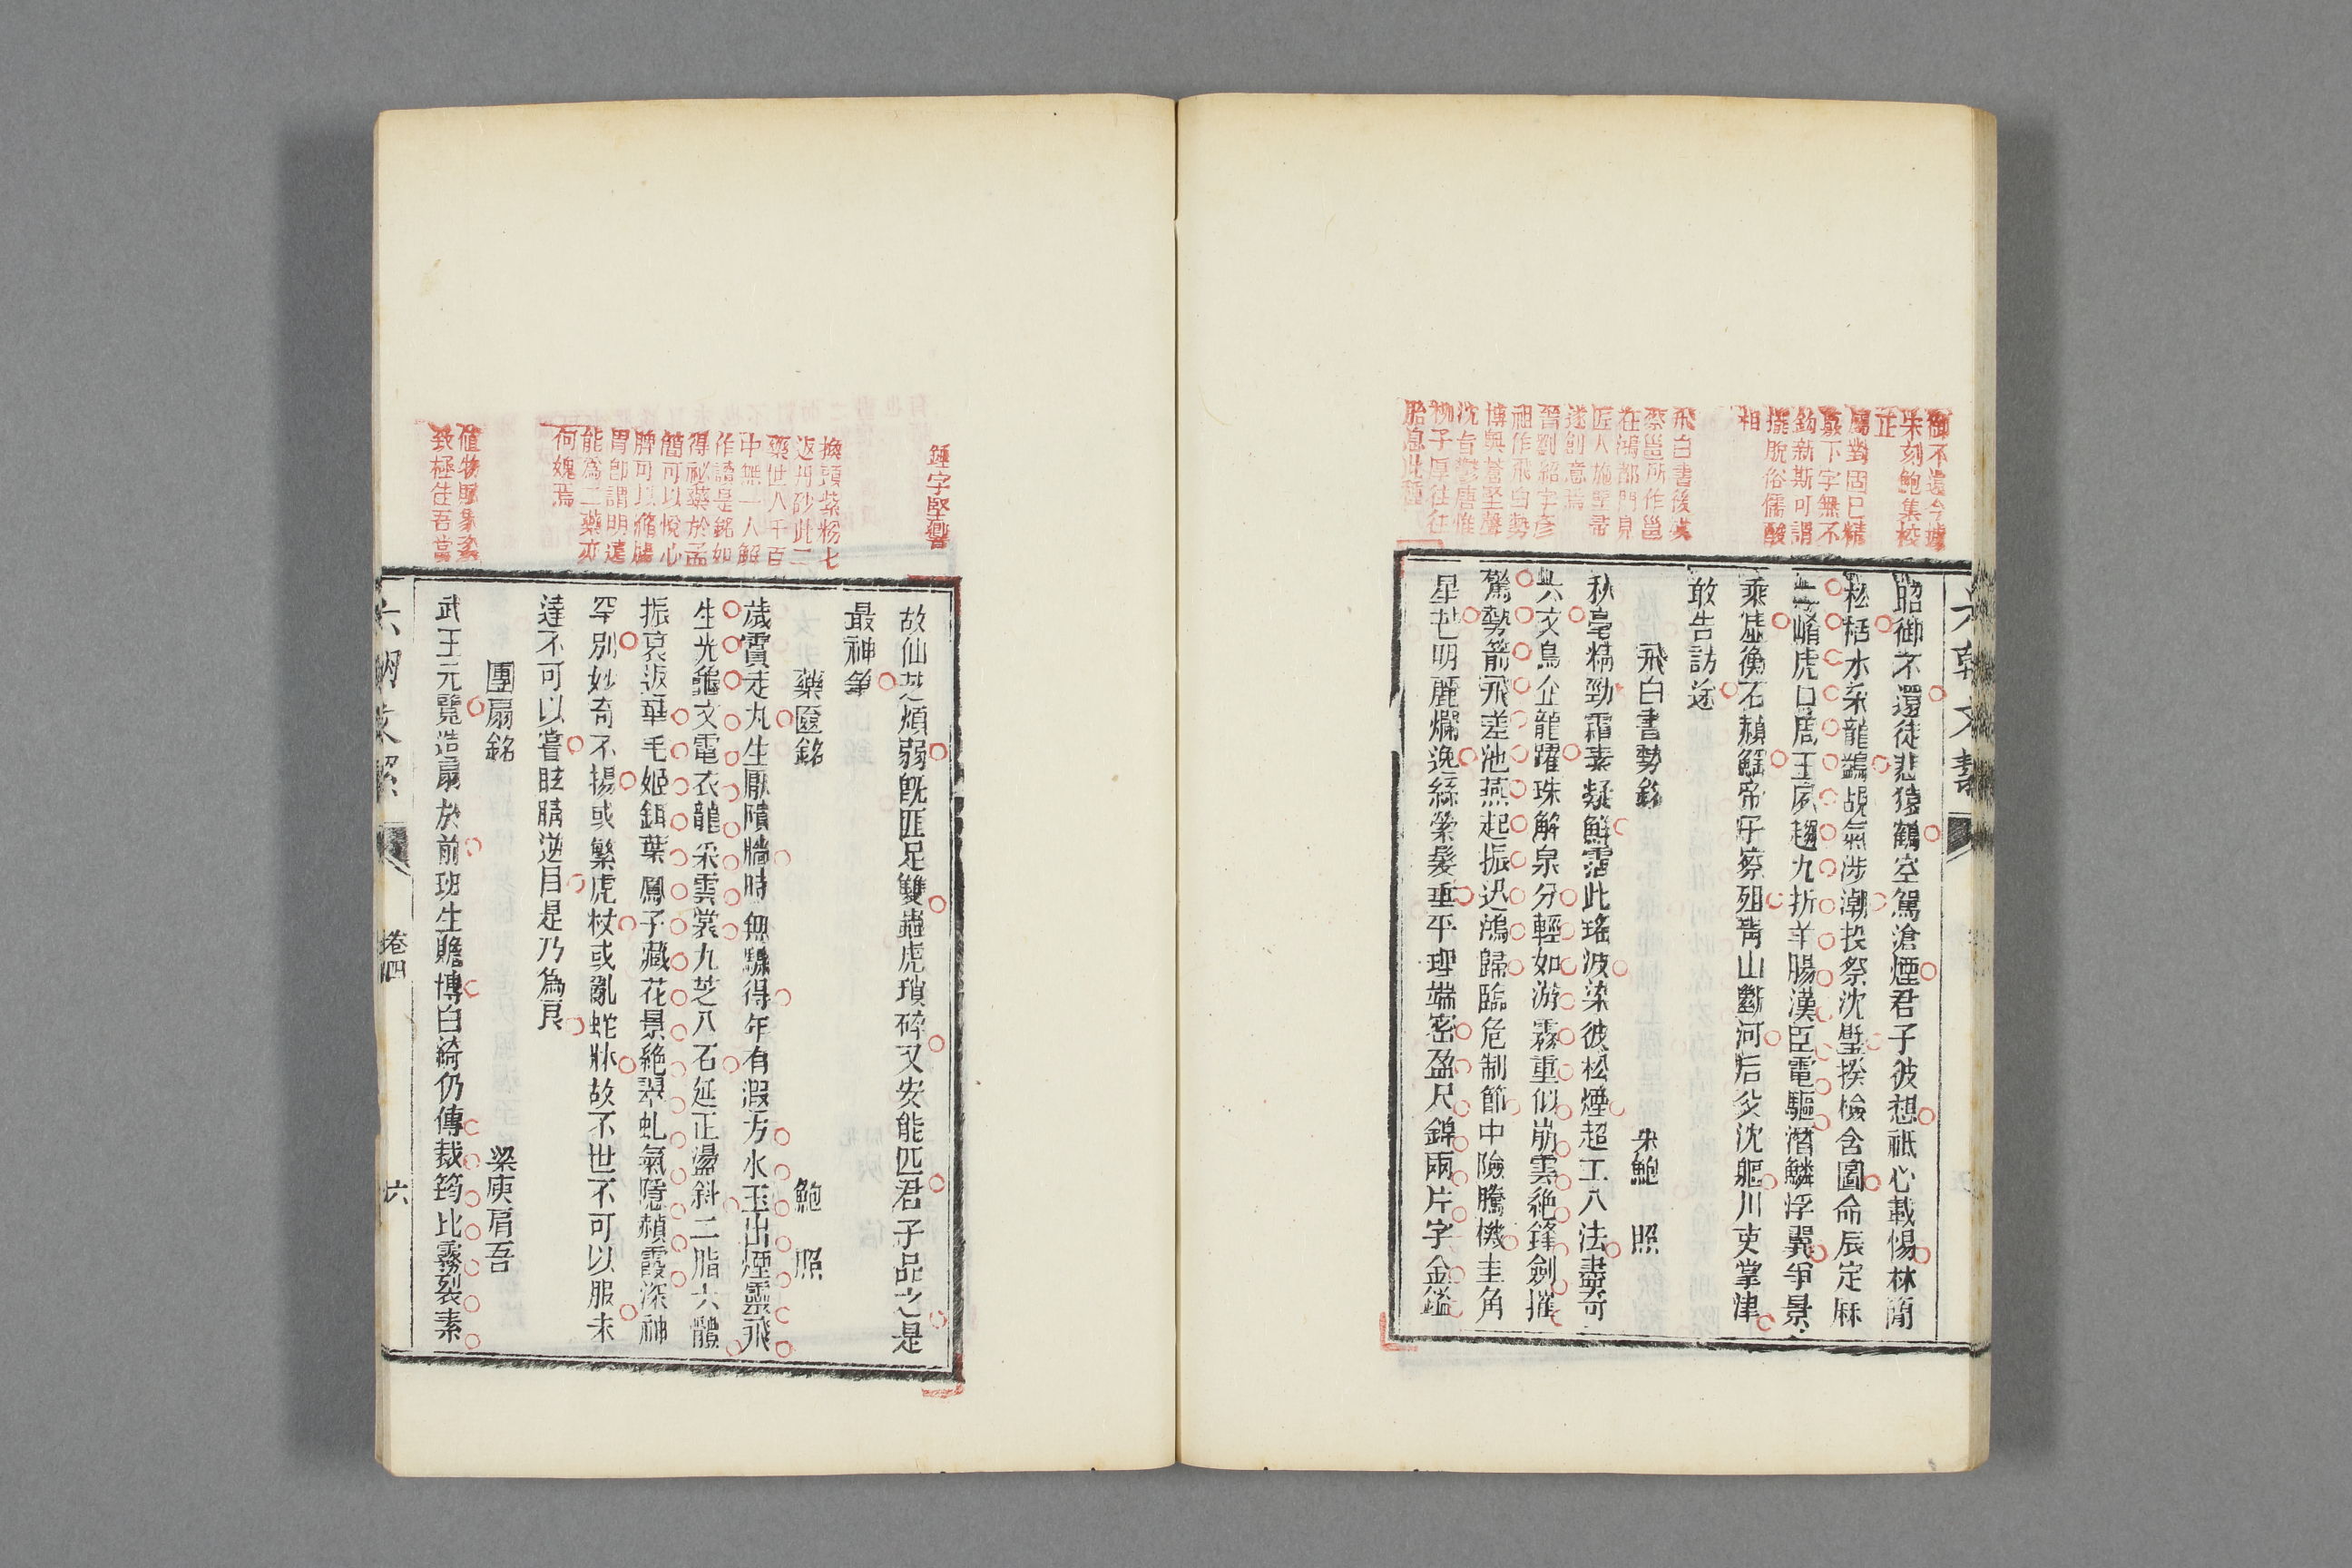 御不還今據
宋刻鮑集校
正
屬對固已精
嚴下字無不
鈎新斯可謂
擺脫俗儒酸
相
飛白書後漢
蔡邕所作邕
在鴻都門見
匠人施堊帚
遂創意焉
晉劉紹字彥
祖作飛白勢
博與蒼堅聲
沈旨鬱唐惟
柳子厚往往
胎息此種
六朝文絜
昭御不還徒悲猿鶴空駕滄煙君子彼想祗心載惕林簡
松栝水采龍鷁覘氣涉潮投祭沈璧揆檢含圖命辰定厤
二崤虎口周王夙趨九折羊腸漢臣電驅潛鱗浮翼爭景
乘虛衡石赬鰩帝子察殂靑山斷河后父沈軀川吏掌津
敢告訪途
飛白書勢銘 宋鮑照
秋毫精勁霜素凝鮮霑此瑤波染彼松煙超工八法盡奇
六文鳥企龍躍珠解泉分輕如游霧重似崩雲絶鋒劍摧
驚勢箭飛差池燕起振迅鴻歸臨危制節中險騰機圭角
星芒明麗爛逸絲縈髮垂平理端密盈尺錦兩片字金鎰
鍾字堅響
換頭紫粉七
返丹砂此二
藥世人千百
中無一人解
作讀是銘如
得祕藥於孟
簡可以悅心
脾可以滌腸
胃卽謂明遠
能爲二藥亦
何媿焉
植物賦象姿
致極佳吾嘗
故仙芝煩弱旣匪足雙蟲虎瑣碎又安能匹君子品之是
最神筆
藥奩銘 鮑照
歲霣走丸生厭隤牆時無驟得年有遐方水玉出煙靈飛
生光龜文電衣龍采雲裳九芝八石延正盪斜二脂六體
振衰返華毛姬餌葉鳳子藏花景絶翠虬氣隱赬霞深神
罕別妙奇不揚或繁虎杖或亂蛇牀故不世不可以服未
達不可以嘗眩睛逆目是乃爲良
團扇銘 梁庾肩吾
武王元覽造扇於前班生贍博白綺仍傳裁筠比霧裂素
六朝文絜 卷四 六